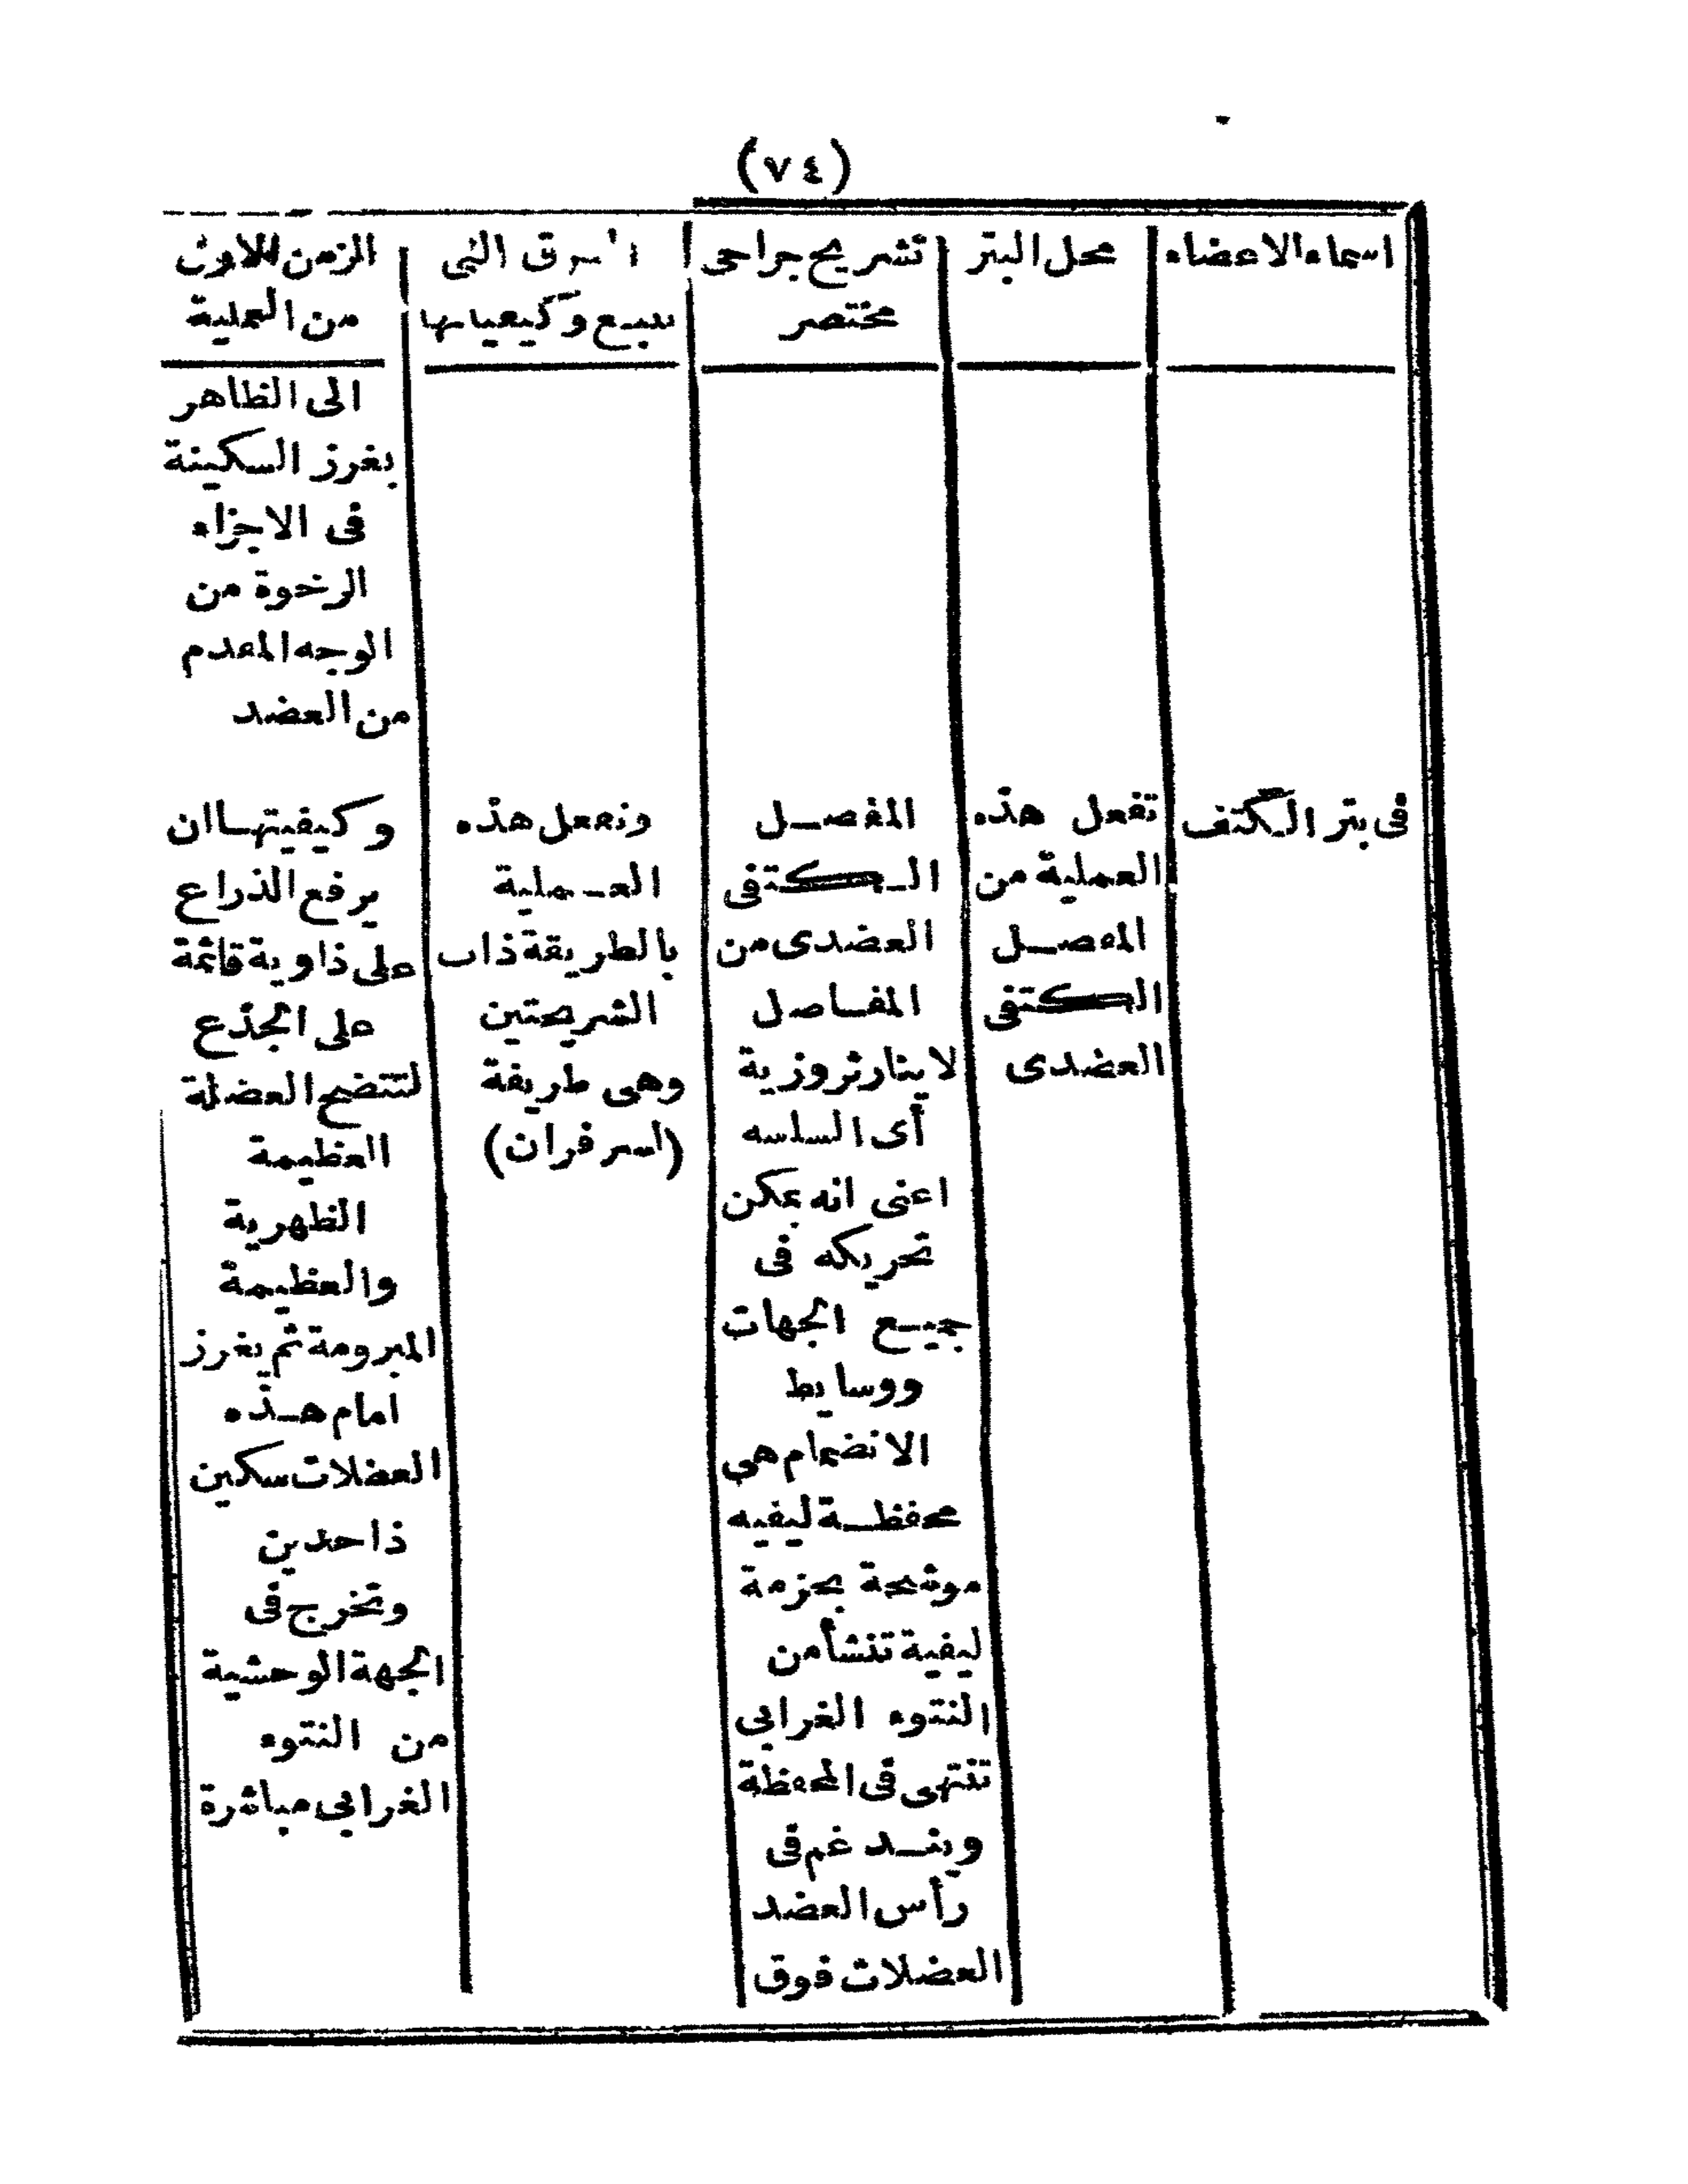 (٧٤)
اسماء الاعضاء
محل البتر
تشريح جراحى
مختصر
التى
وكيفياتها
الزمن الاول
من العملية
الى الظاهر
بغرز السكينة
فى الاجزاء
الرخوة من
الوجه المقدم
من العضد
فى بتر الكتف
تفعل هذه
العملية من
المفصل
الكتفى
العضدى
المفصل
الكتفى
العضدى من
المفاصل
لا يثار ثروزية
أى السلسه
اعنى انه يمكن
تحريكه فى
جميع الجهات
ووسايط
الانضمام هى
محفظة ليفيه
موشحة بحزمة
ليفية تنشأ من
النتوء الغرابى
تنتهى فى المحفظة
ويندغم فى
رأس العضد
العضلات فوق
وتفعل هذه
العملية
بالطريقة ذات
الشريحتين
وهى طريقة
(لسرفران)
وكيفيتها ان
يرفع الذراع
على ذاوية قائمة
على الجذع
لتتضح العضلة
العظيمة
الظهرية
والعظيمة
المبرومة ثم يغرز
امام هذه
العضلات سكين
ذا حدين
وتخرج فى
الجهة الوحشية
من النتوء
الغرابى مباشرة